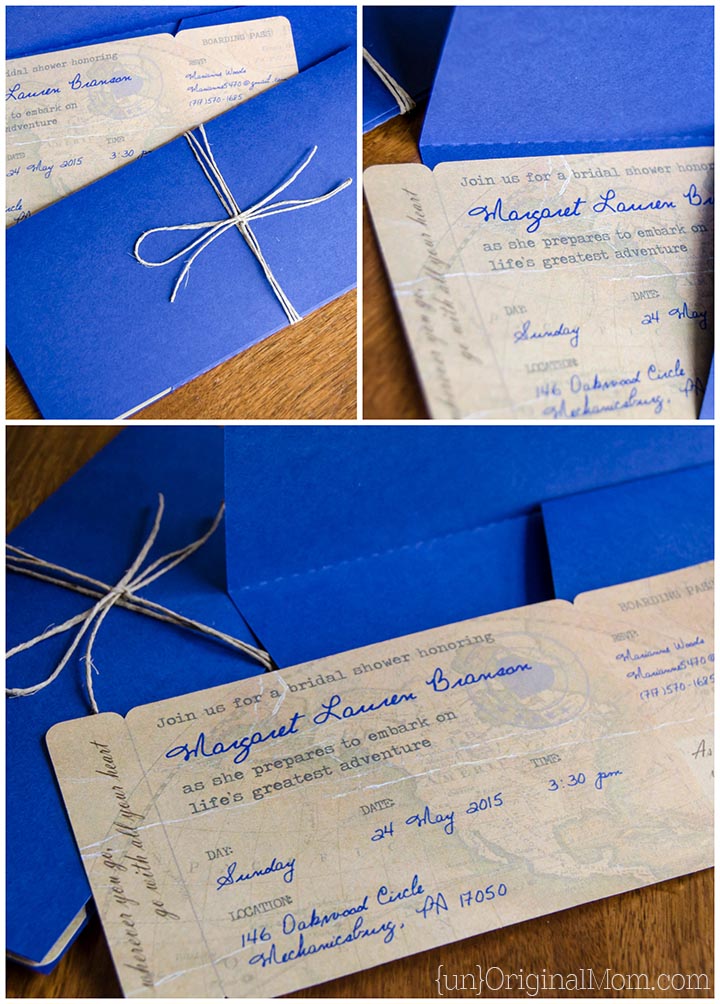 BOARDING PASS
bridal shower honoring
Lauren Branson
s to embark on
adventure
RSVP:
Marianne Woods
Marianne5470@gmail.com
(717)570-1685
TIME:
24 May 2015
3:30 p
Circle
Join us for a bridal shower honor
Margaret Lauren Br
as she prepares to embark on
life's greatest adventure
DAY:
DATE:
Sunday
24 May
LOCATION:
146 Oakwood Circle
Mechanicsburg, PA
wherever you go,
go with all your heart
Join us for a bridal shower honoring
Margaret Lauren Branson
as she prepares to embark on
life's greatest adventure
DAY:
DATE:
TIME:
Sunday
24 May 2015
3:30 pm
LOCATION:
146 Oakwood Circle
Mechanicsburg, PA 17050
wherever you go,
go with all your heart
BOARDING PASS
RSVP:
Marianne Woods
Marianne5470@gmail
(717)570-1685
As
{un}OriginalMom.com